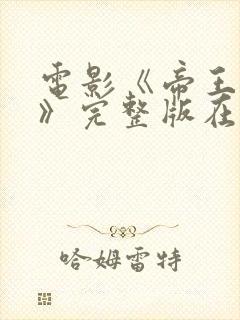 電影《帝王
》完整版在
哈姆雷特